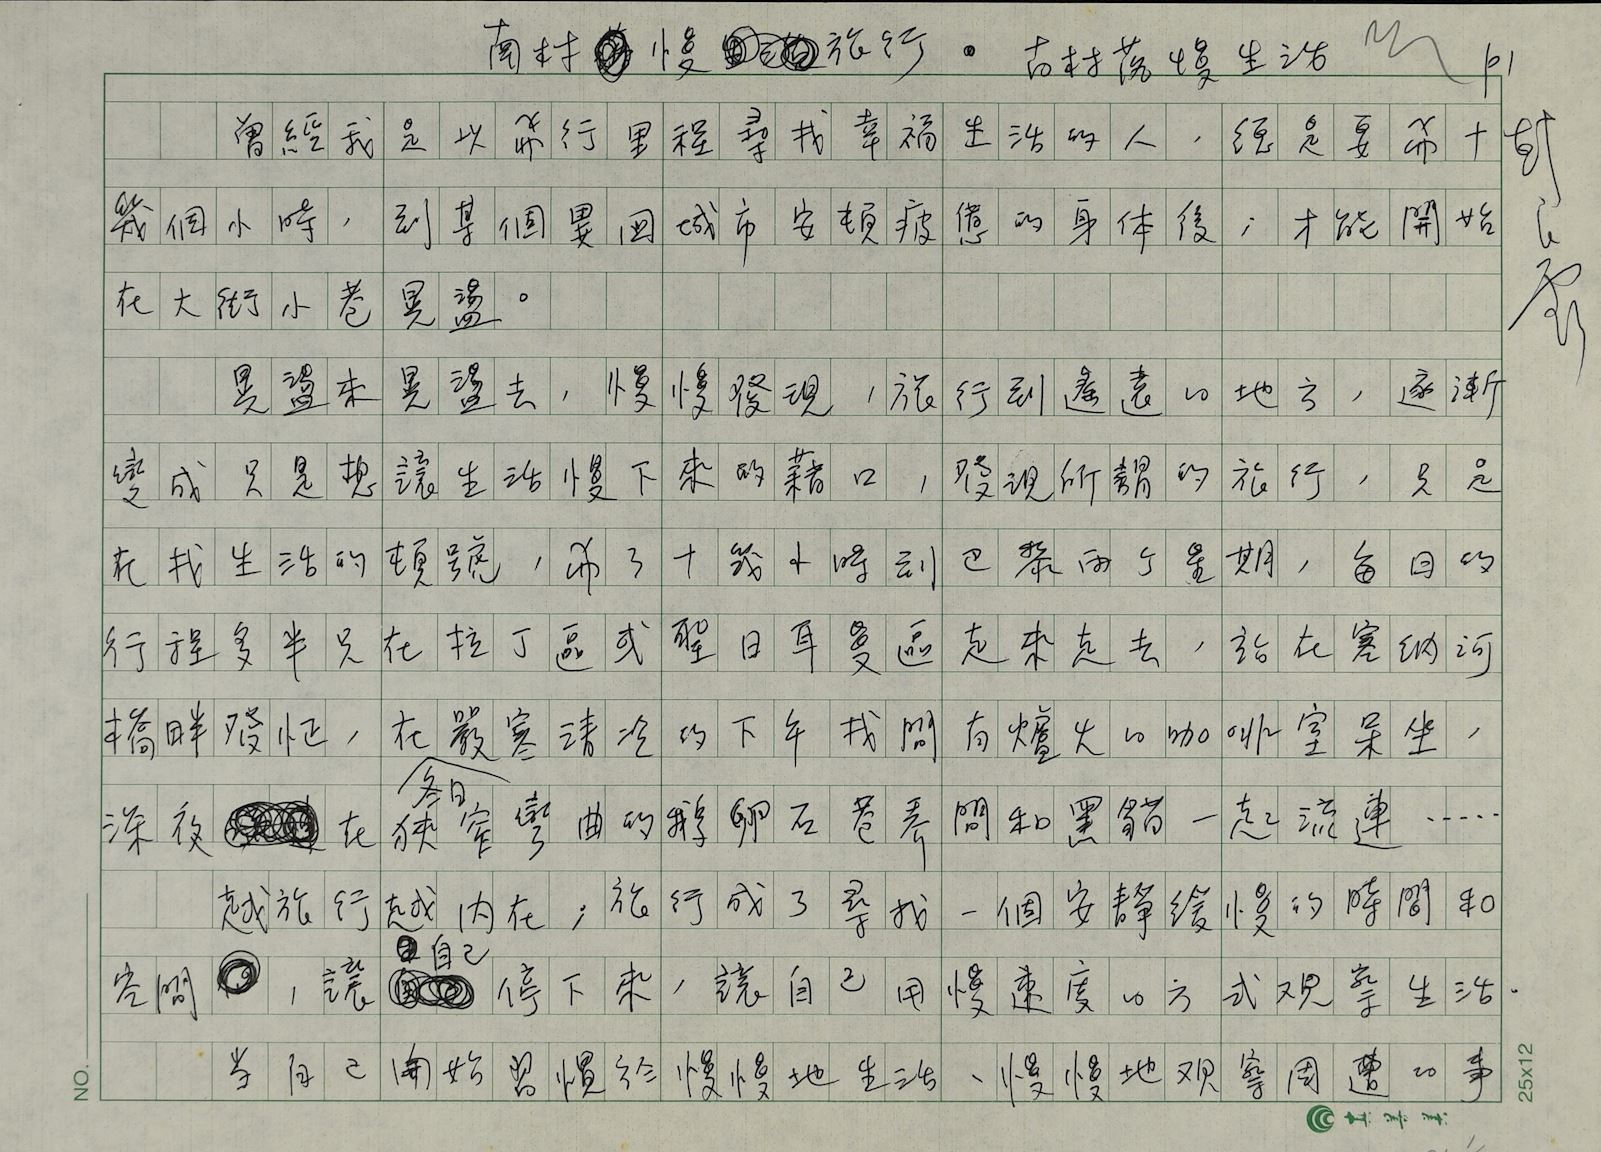 南村慢旅行・古村落慢生活 P1
曾經我是以飛行里程尋找幸福生活的人,總是要飛十
幾個小時,到某個異國城市安頓疲憊的身体後;才能開始
在大街小巷晃盪。
晃盪來晃盪去,慢慢發現,旅行到遙遠的地方,逐漸
變成只是想讓生活慢下來的藉口,發現所謂的旅行,只是
在找生活的頓號,飛了十幾小時到巴黎兩个星期,每日的
行程多半只在拉丁區或聖日耳曼區走來走去,站在塞納河
橋畔發怔,在嚴寒清冷的下午找間有爐火的咖啡室呆坐,
深夜在冬日狹窄彎曲的鵝卵石巷弄間和黑貓一起流連……
越旅行越內在;旅行成了尋找一個安靜緩慢的時間和
空間,讓自己停下來,讓自己用慢速度的方式观察生活.
當自己開始習慣於慢慢地生活、慢慢地观察周遭的事
NO.
25x12